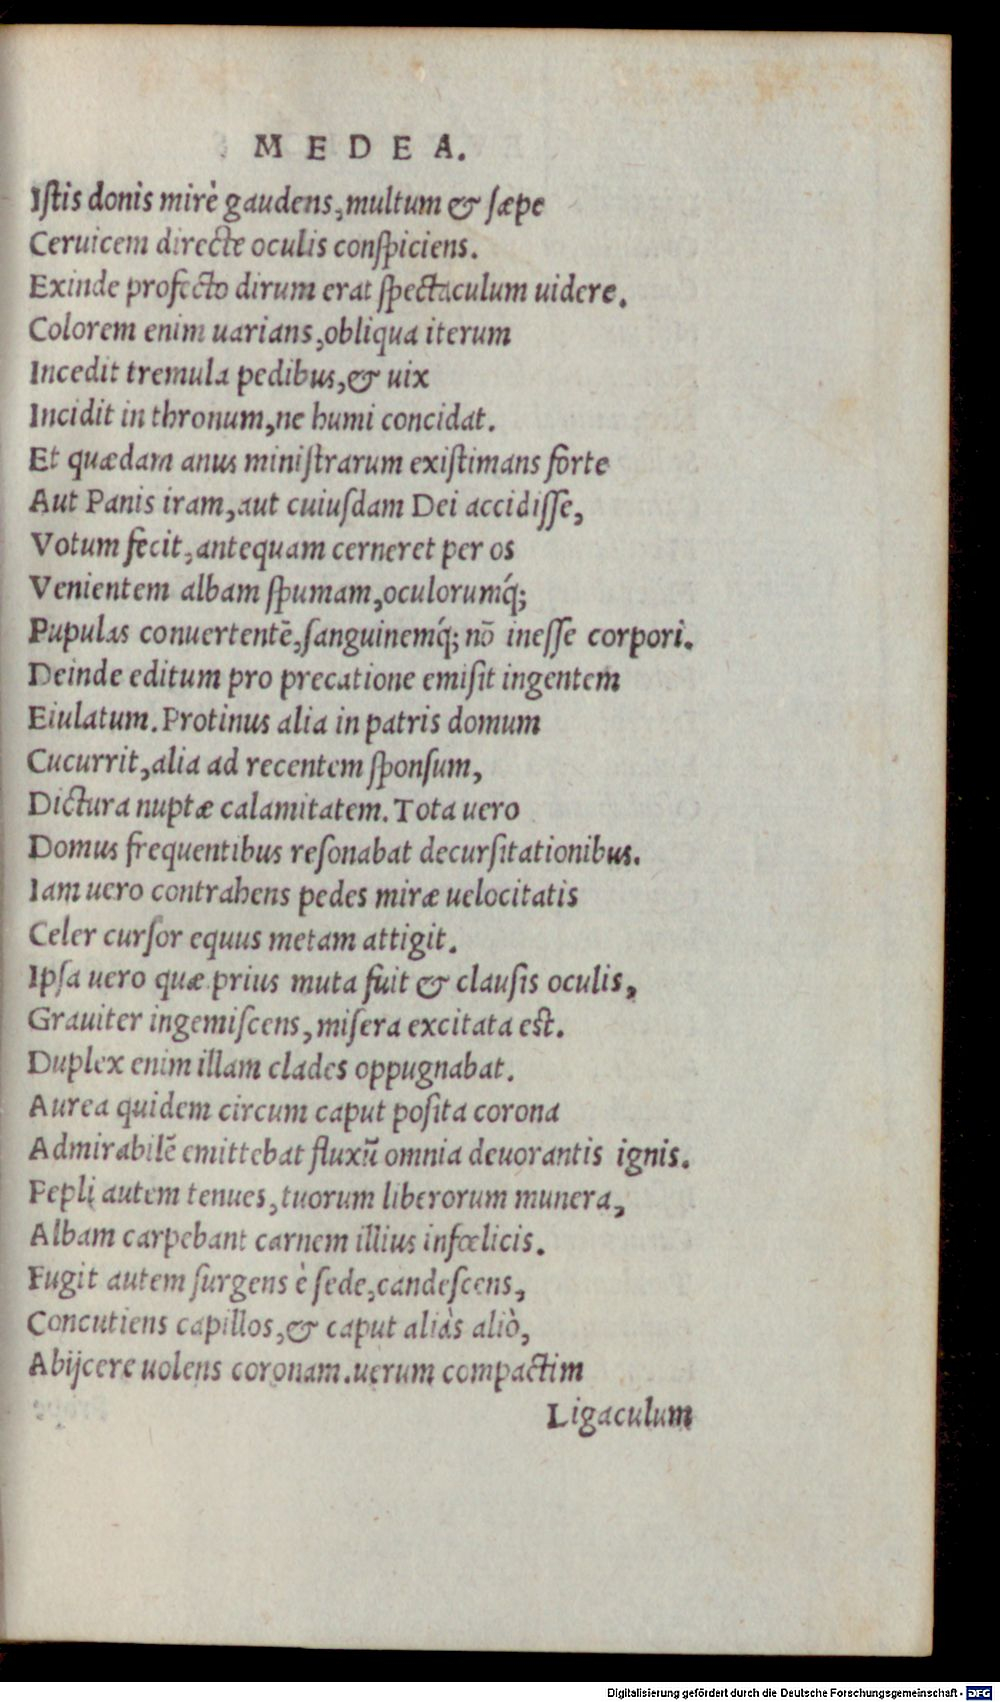 MEDEA.
Istis donis mirè gaudens, multum & sæpe
Ceruicem directe oculis conspiciens.
Exinde profecto dirum erat spectaculum uidere.
Colorem enim uarians, obliqua iterum
Incedit tremula pedibus, & uix
Incidit in thronum, ne humi concidat.
Et quædam anus ministrarum existimans forte
Aut Panis iram, aut cuiusdam Dei accidisse,
Votum fecit, antequam cerneret per os
Venientem albam spumam, oculorumq́;
Pupulas conuertentē, sanguinemq́; nō inesse corpori.
Deinde editum pro precatione emisit ingentem
Eiulatum. Protinus alia in patris domum
Cucurrit, alia ad recentem sponsum,
Dictura nuptæ calamitatem. Tota uero
Domus frequentibus resonabat decursitationibus.
Iam uero contrahens pedes miræ uelocitatis
Celer cursor equus metam attigit.
Ipsa uero quæ prius muta fuit & clausis oculis,
Grauiter ingemiscens, misera excitata est.
Duplex enim illam clades oppugnabat.
Aurea quidem circum caput posita corona
Admirabilē emittebat fluxū omnia deuorantis ignis.
Pepli autem tenues, tuorum liberorum munera,
Albam carpebant carnem illius infœlicis.
Fugit autem surgens è sede, candescens,
Concutiens capillos, & caput aliàs aliò,
Abijcere uolens coronam. uerum compactim
Ligaculum
Digitalisierung gefördert durch die Deutsche Forschungsgemeinschaft - DFG